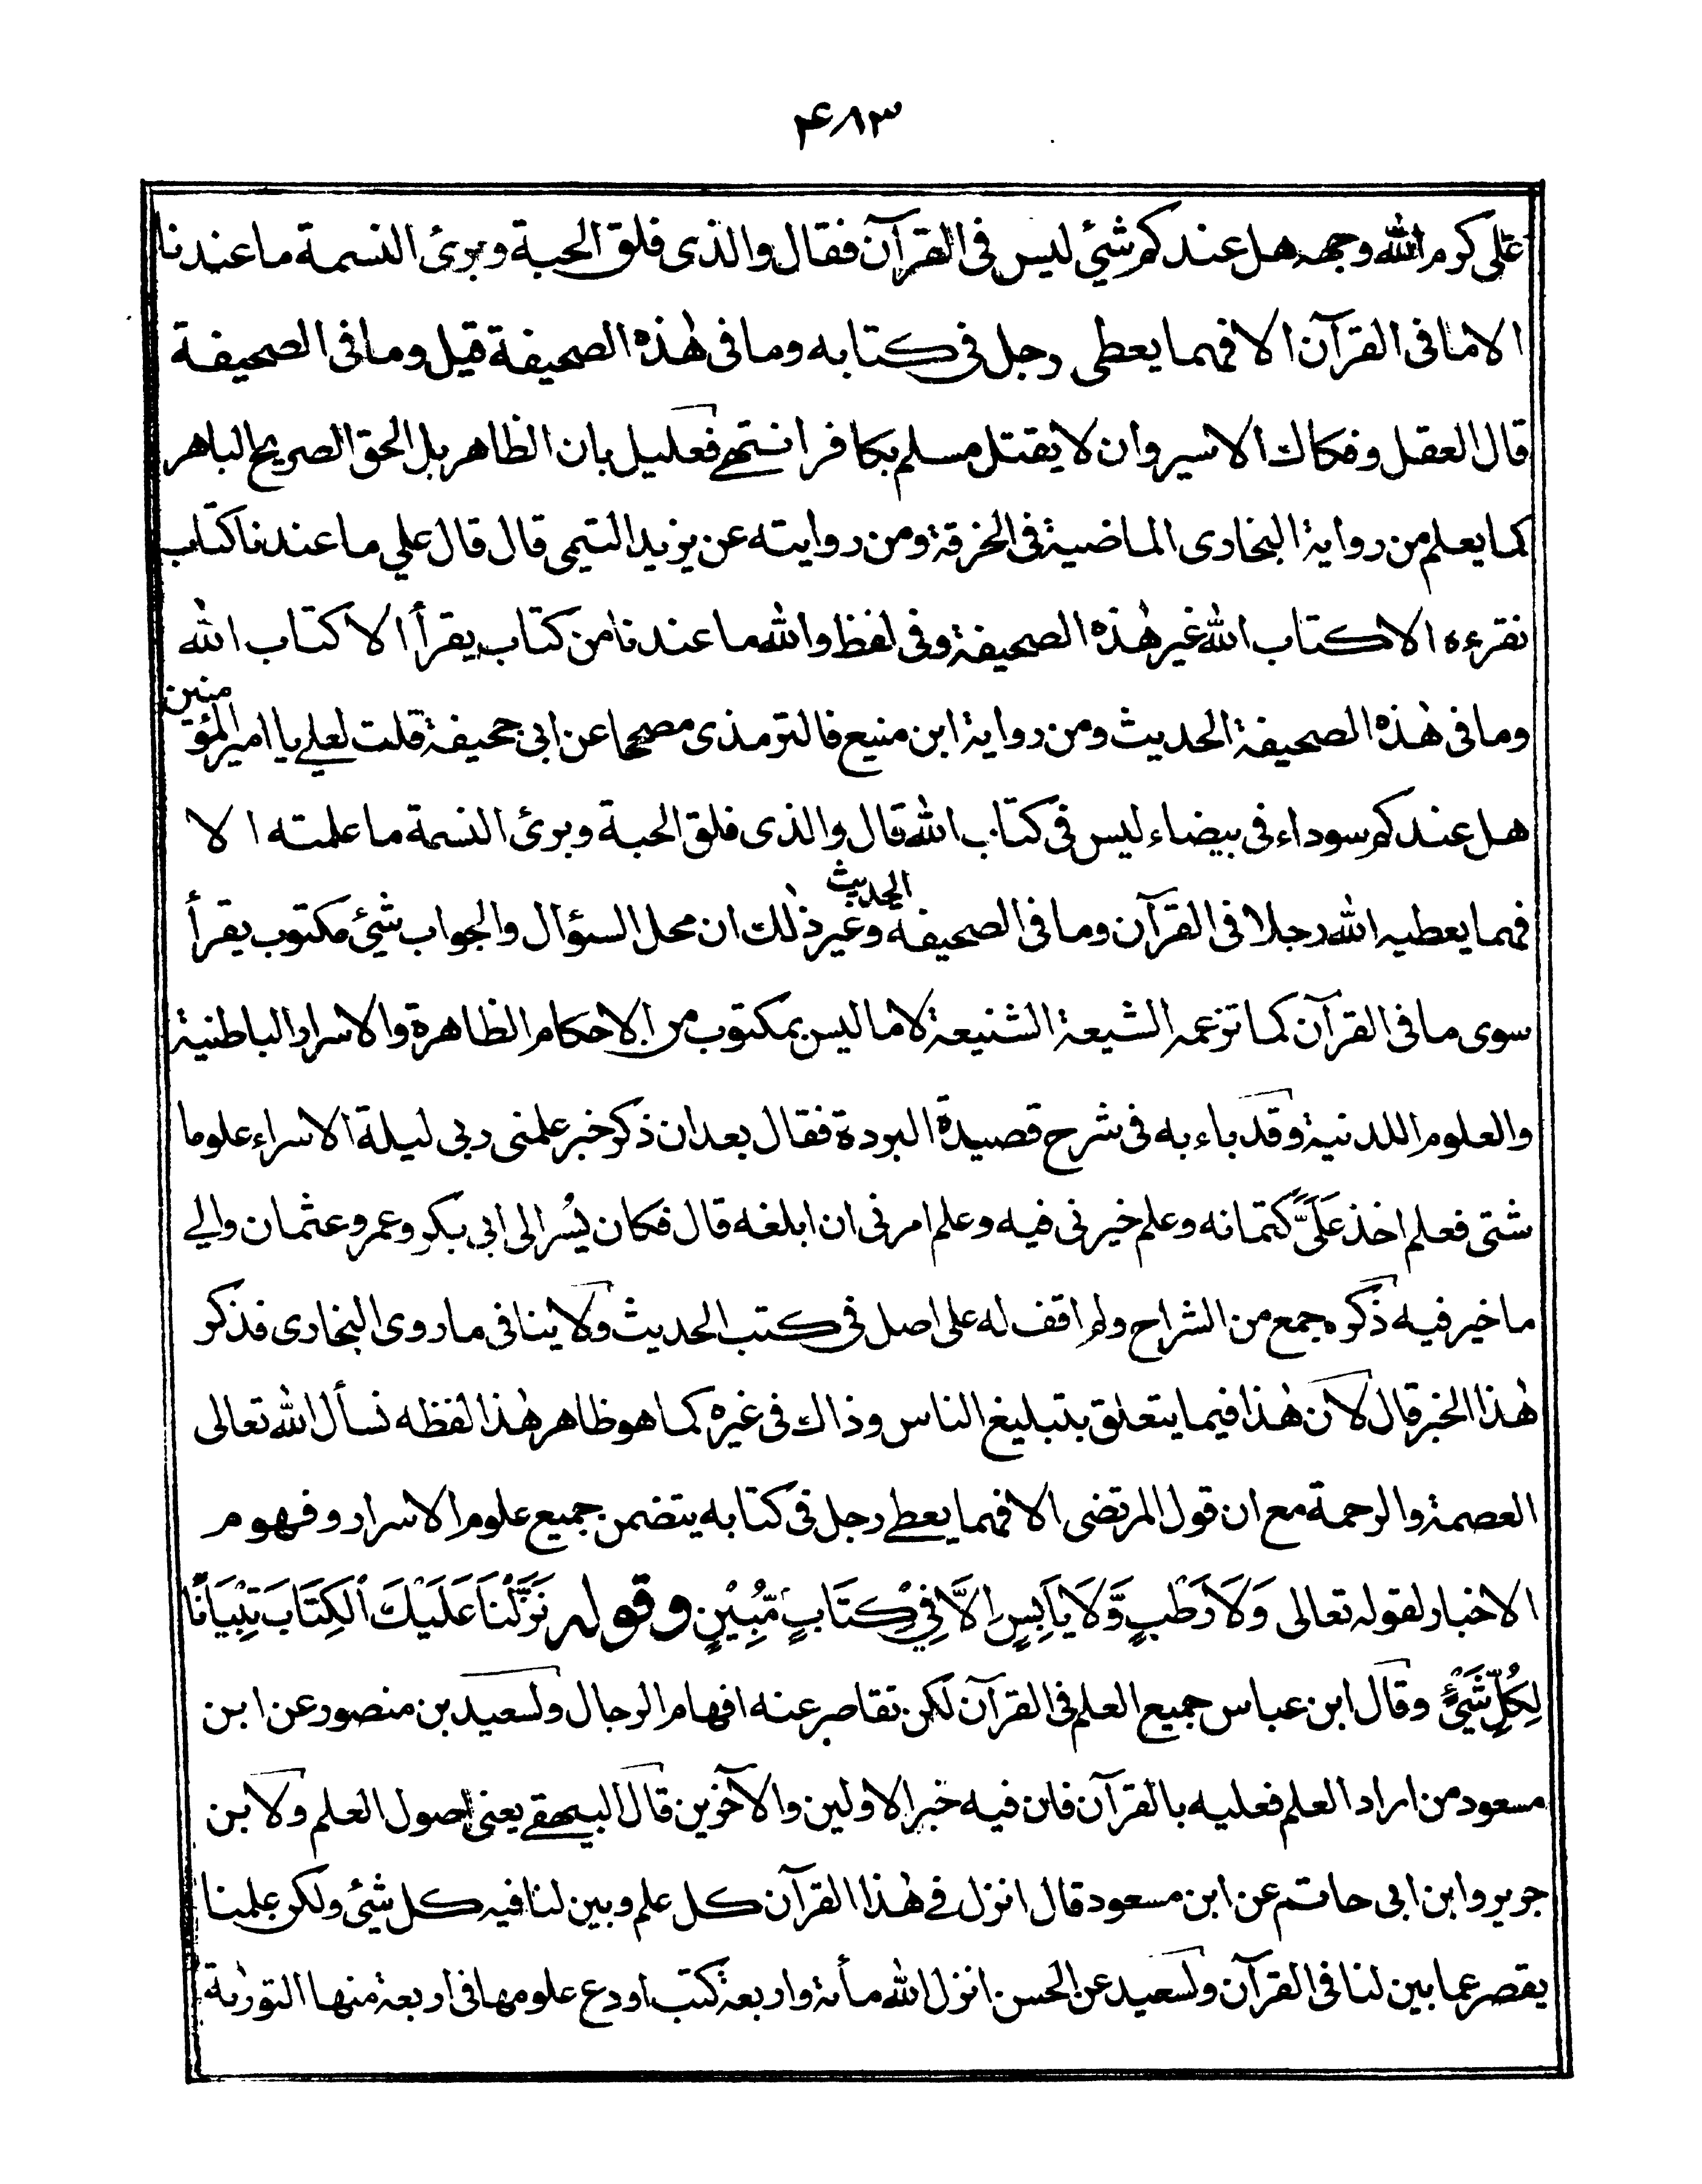 ۴۸۳
علی کرم الله وجهه هل عندکم شئی لیس فی القرآن فقال والذی فلق الحبة وبرئ النسمة ما عندنا
الا ما فی القرآن الا فهما یعطی رجل فی کتابه وما فی هٰذه الصحیفة قیل وما فی الصحیفة
قال العقل وفکاك الاسیر وان لا یقتل مسلم بکافر انتهے فعلیل بان الظاهر بل الحق الصریح الباهر
کما یعلم من روایة البخاری الماضیة فی الخرقة ومن روایته عن یزید التیمی قال قال علي ما عندنا کتاب
نقرءه الا کتاب الله غیر هٰذه الصحیفة وفی لفظ والله ما عندنا من کتاب یقرأ الا کتاب الله
وما فی هٰذه الصحیفة الحدیث ومن روایة ابن منیع فالترمذی مصححا عن ابی جحیفة قلت لعلے یا امیر المؤمنین
هل عندکم سوداء فی بیضاء لیس فی کتاب الله قال والذی فلق الحبة وبرئ النسمة ما علمته الا
فهما یعطیه الله رجلا فی القرآن وما فی الصحیفة الحدیث وغیر ذٰلك ان محل السؤال والجواب شئی مکتوب یقرأ
سوی ما فی القرآن کما تزعمه الشیعة الشنیعة لا ما لیس بمکتوب من الاحکام الظاهرة والاسرار الباطنیة
والعلوم اللدنیة وقد باء به فی شرح قصیدة البردة فقال بعد ان ذکر خبر علمنی ربی لیلة الاسراء علوما
شتی فعلم اخذ عَلَیَّ کتمانه وعلم خیرنی فیه وعلم امرنی ان ابلغه قال فکان یُسر الی ابی بکر وعمر وعثمان والے
ما خیر فیه ذکره جمع من الشراح ولم اقف له علی اصل فی کتب الحدیث ولا ینافی ما روی البخاری فذکر
هٰذا الخبر قال لان هٰذا فیما یتعلق بتبلیغ الناس وذاك فی غیره کما هو ظاهر هٰذا لفظه نسأل الله تعالی
العصمة والرحمة مع ان قول المرتضی الا فهما یعطے رجل فی کتابه یتضمن جمیع علوم الاسرار وفهوم
الاخبار لقوله تعالی وَلَا رَطْبٍ وَّلَا یَابِسٍ اِلَّا فِیْ کِتَابٍ مُّبِیْنٍ وقوله نَزَّلْنَا عَلَیْكَ الْکِتَابَ تِبْیَانًا
لِکُلِّ شَیْءٍ وقال ابن عباس جمیع العلم فی القرآن لکن تقاصر عنه افهام الرجال ولسعید بن منصور عن ابن
مسعود من اراد العلم فعلیه بالقرآن فان فیه خبر الاولین والآخرین قال البیهقے یعنی اصول العلم ولابن
جریر وابن ابی حاتم عن ابن مسعود قال انزل فے هٰذا القرآن کل علم وبین لنا فیه کل شئی ولکن علمنا
یقصر عما بین لنا فی القرآن ولسعید عن الحسن انزل الله مأة واربعة کتب اودع علومها فی اربعة منها التورٰىة